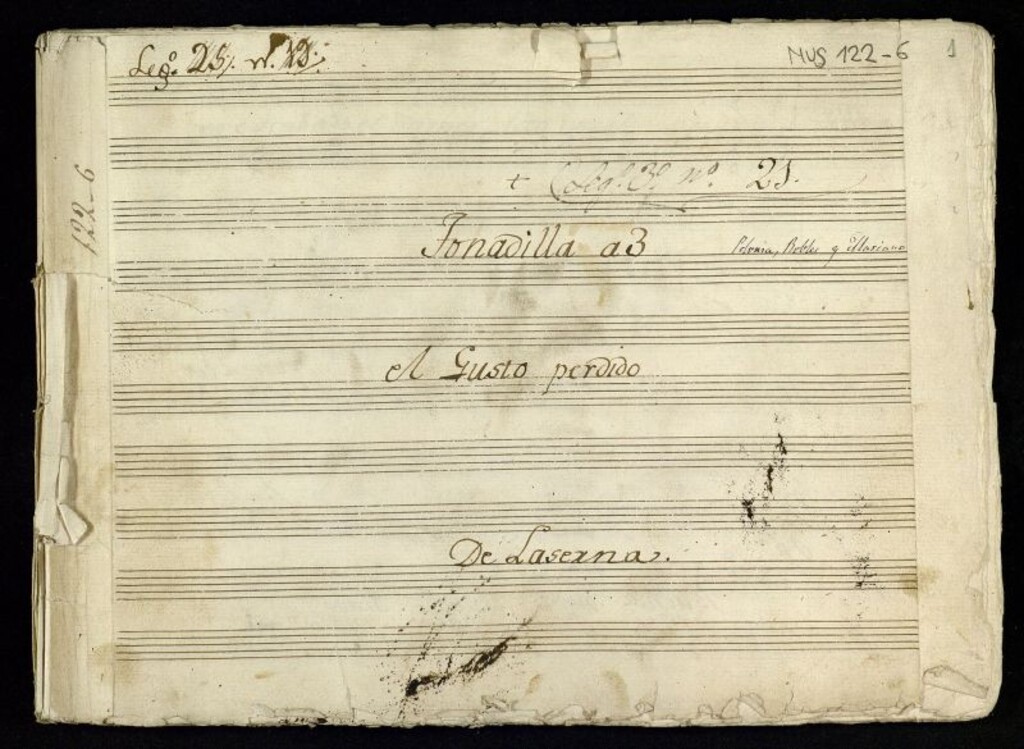 Legº. 25. nº.
MUS 122-6
1
122-6
+ Colgº. 3º. nº. 21.
Tonadilla a 3
Polonia, Robles y Mariano
el Gusto perdido
De Laserna.